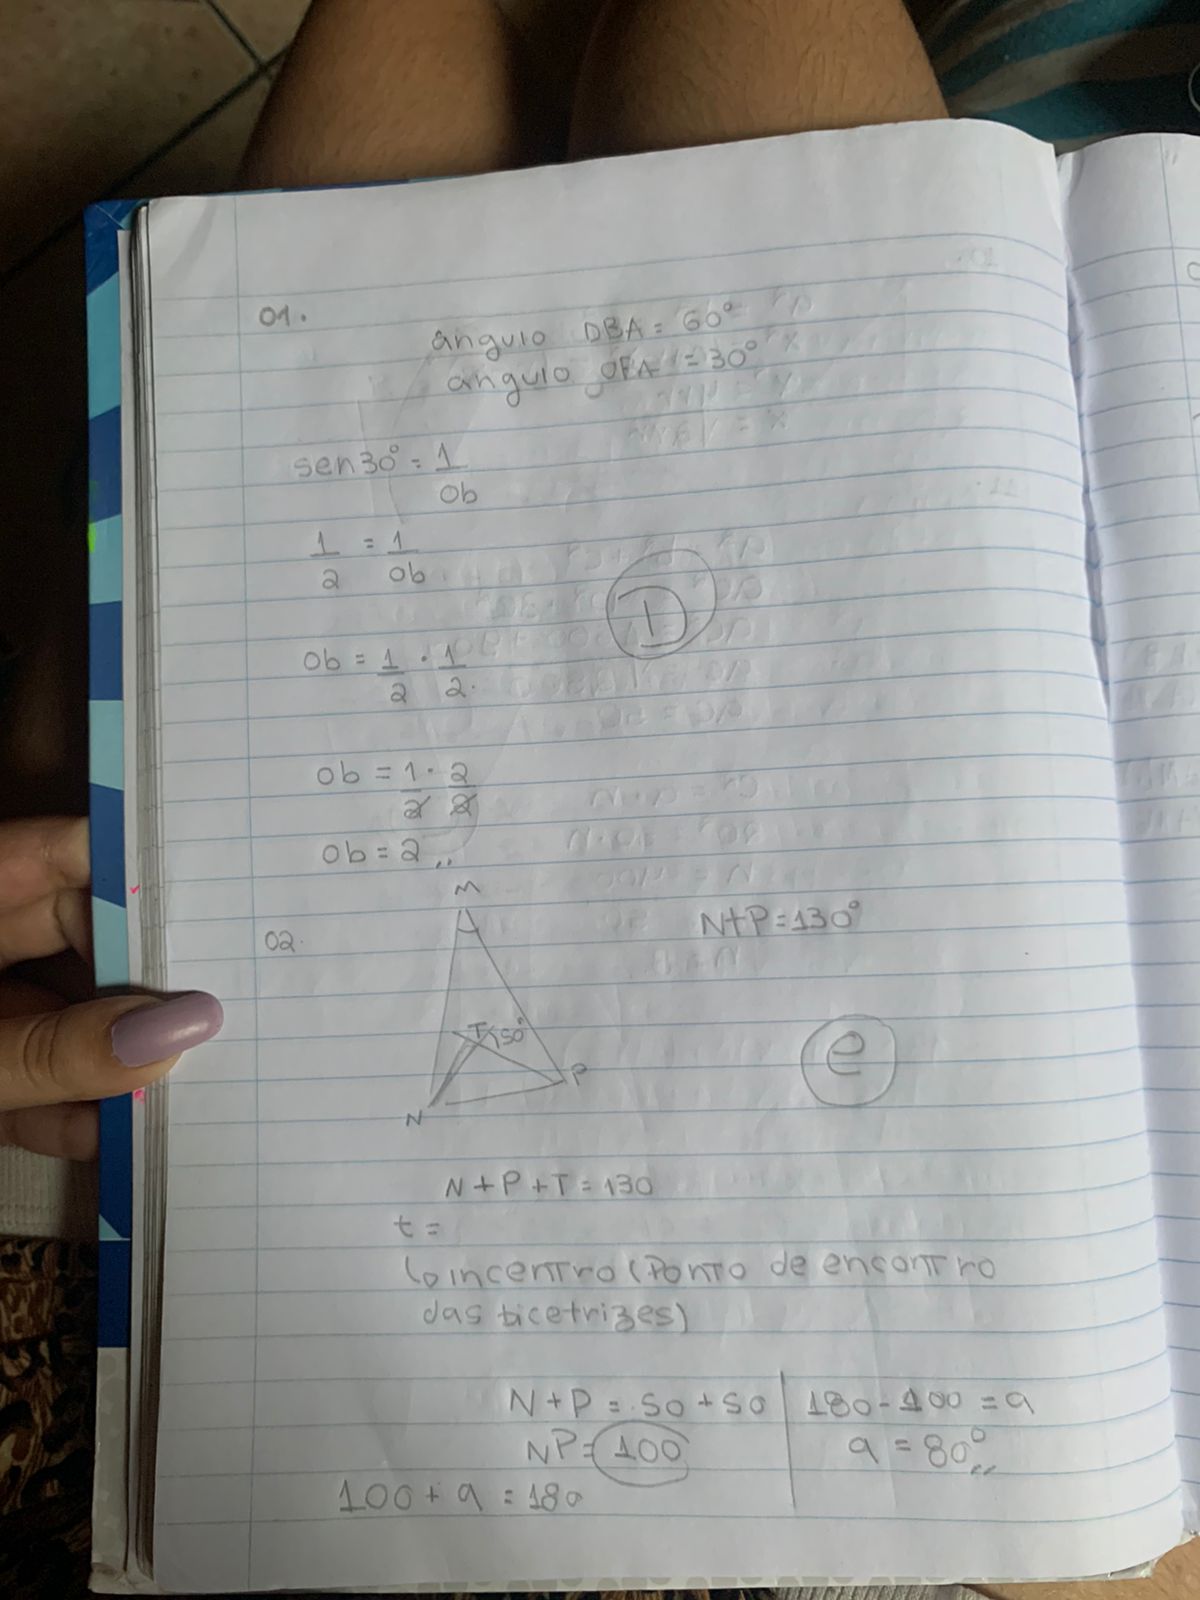 01.
ângulo DBA = 60°
angulo OFA = 30°
sen30° = 1/ob
1/2 = 1/ob
D
ob = 1/2 · 1/2.
ob = 1/2 · 2/2
ob = 2,,
M
02. N+P=130°
T 50°
e
P
N
N+P+T=130
t =
↳ incentro (Ponto de encontro
das bicetrizes)
N+P = 50+50
NP= 100
100 + a = 180
180-100 = a
a = 80°,,